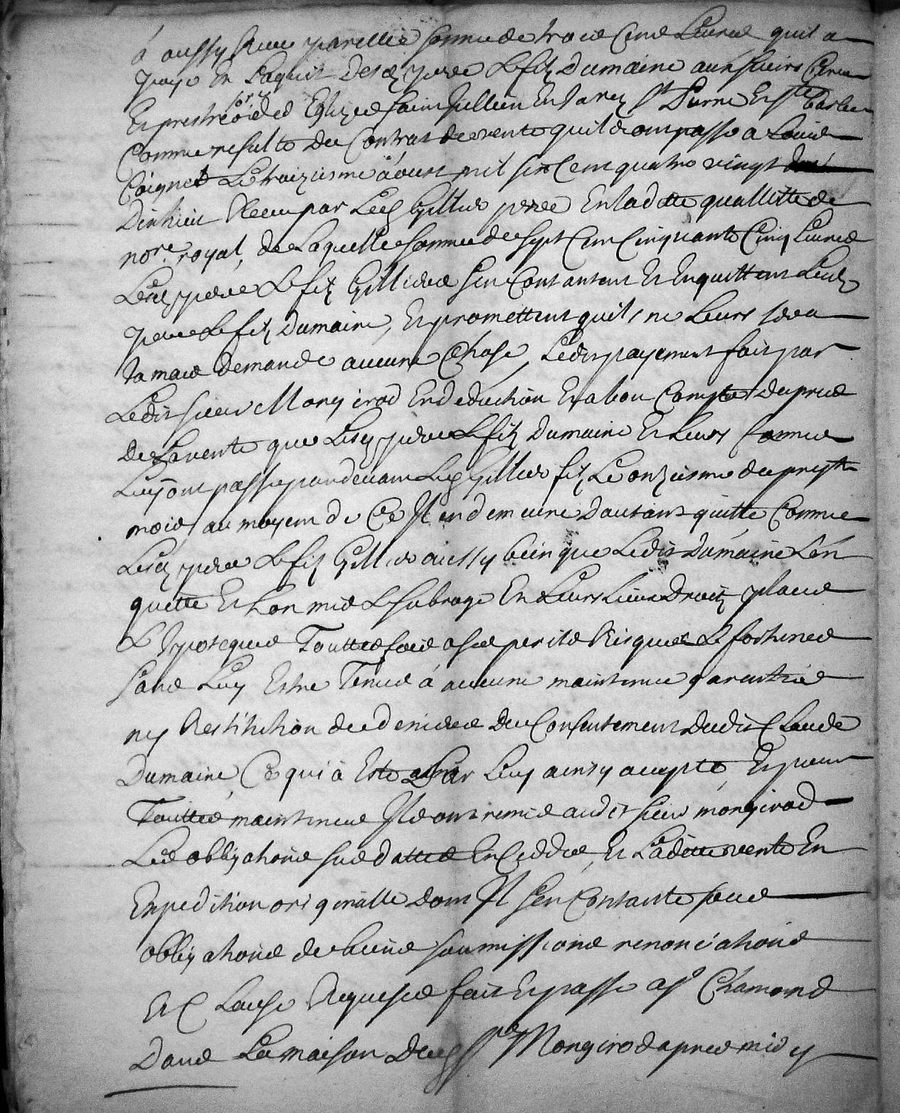 a aussy une pareillie somme de trois cens Livres quil a
paye en Laquit desd pere Le fiz Dumaine aux sieurs Cures
Et prestres des Eglizes Sain Jullien En Jarez St
Comme resulte du Contrat de vente quil a passe a Louis
Coignet Le traiziesme aoust mil six Cent quatre vingt
Dixhuit Receu par Led Gillier pere En laditte quallitte de
nore. royal, de Laquelle somme de sept Cens Cinquante Cinq Livres
Lesd pere Le fiz Gilliers sen Contantent Et En quittent Lesd
pere Le fiz Dumaine, Et promettent quil ne Leurs sera
Jamais demande aucune Chose, Ledit payement fait par
Ledit sieur Mongirod En deduction Et a bon Compte du pris
de La vente que Lesd pere Le fiz Dumaine Et Leurs
Luy ont passe pardevant Led Gillier fiz Le onziesme du pnt
mois au moyen de Ce Jl en demeure dautant quitte Comme
Lesd pere Le fiz Gillier aussy bien que Ledit Dumaine Len
quitte Et Lon mis Le subroge En Leurs Lieu Droitz place
Le Ypoteques Touttes fois a ses perils Risques Le fortunes
sans Luy Estre Tenus a aucune maintenue garentie
ny Restitution de deniers du Consentement dudit Claude
Dumaine, Ce qui a Este par Luy ainsy accepte Et pour
Toutte maintenue Jls ont remis audit sieur mongirod
Les obligations sus dattes En Cedde, Et Laditte vente En
Expedition originalle dont Jl sen Contante sous
obligations de biens soumissions renonciations
Et Clause Requises fait Et passe a St Chamond
Dans La maison dud Sr Mongirod apres midy